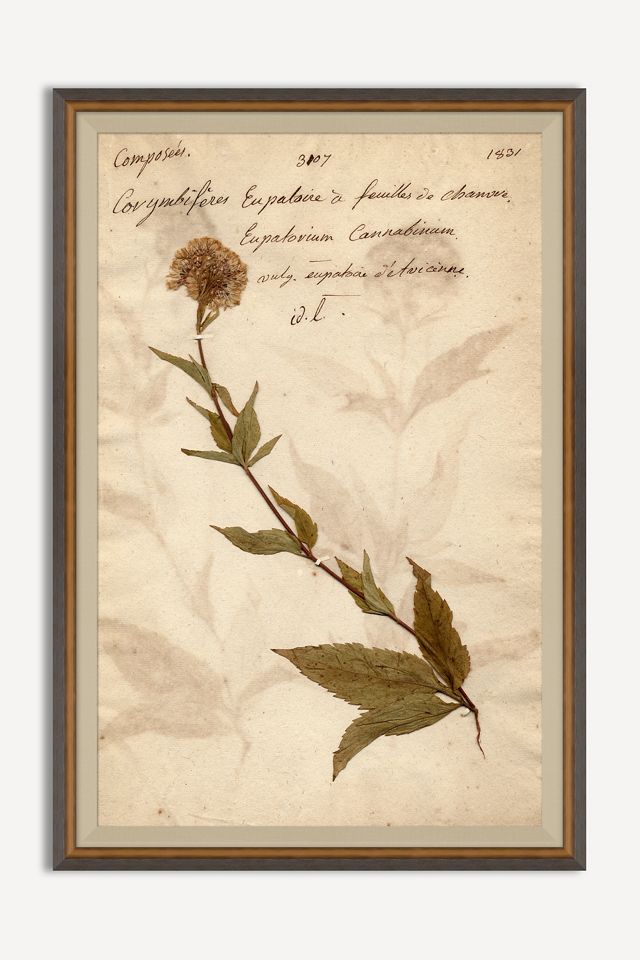 Composées. 3107 1831
Corymbifères Eupatoire à feuilles de chanvre.
Eupatorium Cannabinum.
vulg. eupatoire d'Avicenne.
id. l.